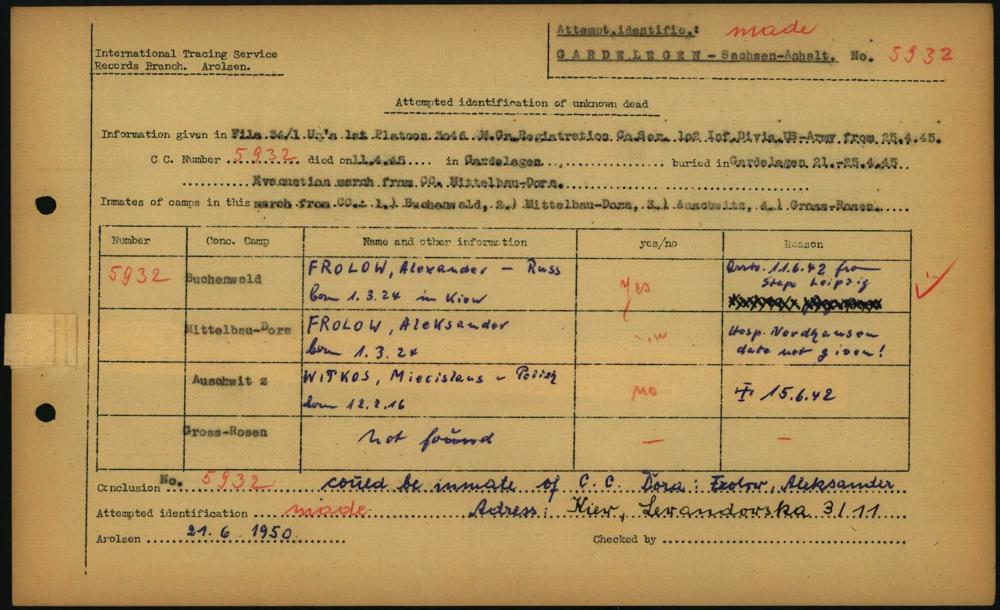 Attempt.identific.: made
GARDELEGEN - Sachsen-Anhalt. No. 5932
International Tracing Service
Records Branch. Arolsen.
Attempted identification of unknown dead
Information given in File 34/1 Un's 1st Platoon 3046 M.Gr.Registration Co.Ser. 102 Inf.Divis.US-Army from 25.4.45.
C.C. Number 5932 died on 11.4.45 in Gardelegen buried in Gardelegen 21.-25.4.45
Evacuation march from CC. Mittelbau-Dora.
Inmates of camps in this march from CC.: 1.) Buchenwald, 2.) Mittelbau-Dora, 3.) Auschwitz, 4.) Gross-Rosen.
Number Conc. Camp Name and other information yes/no Reason
5932 Buchenwald FROLOW, Alexander - Russ yes 11.6.42 from
born 1.3.24 in Kiew Stapo Leipzig
Mittelbau-Dora FROLOW, Aleksander Hosp. Nordhausen
born 1.3.24 date not given!
Auschwitz WITKOS, Miecislaus - Polish no 15.6.42
born 12.2.16
Gross-Rosen not found — —
Conclusion No. 5932 could be inmate of C.C. Dora: Frolow, Aleksander
Attempted identification made Adress: Kiew, Lewandowska 3/11
Arolsen 21.6.1950. Checked by